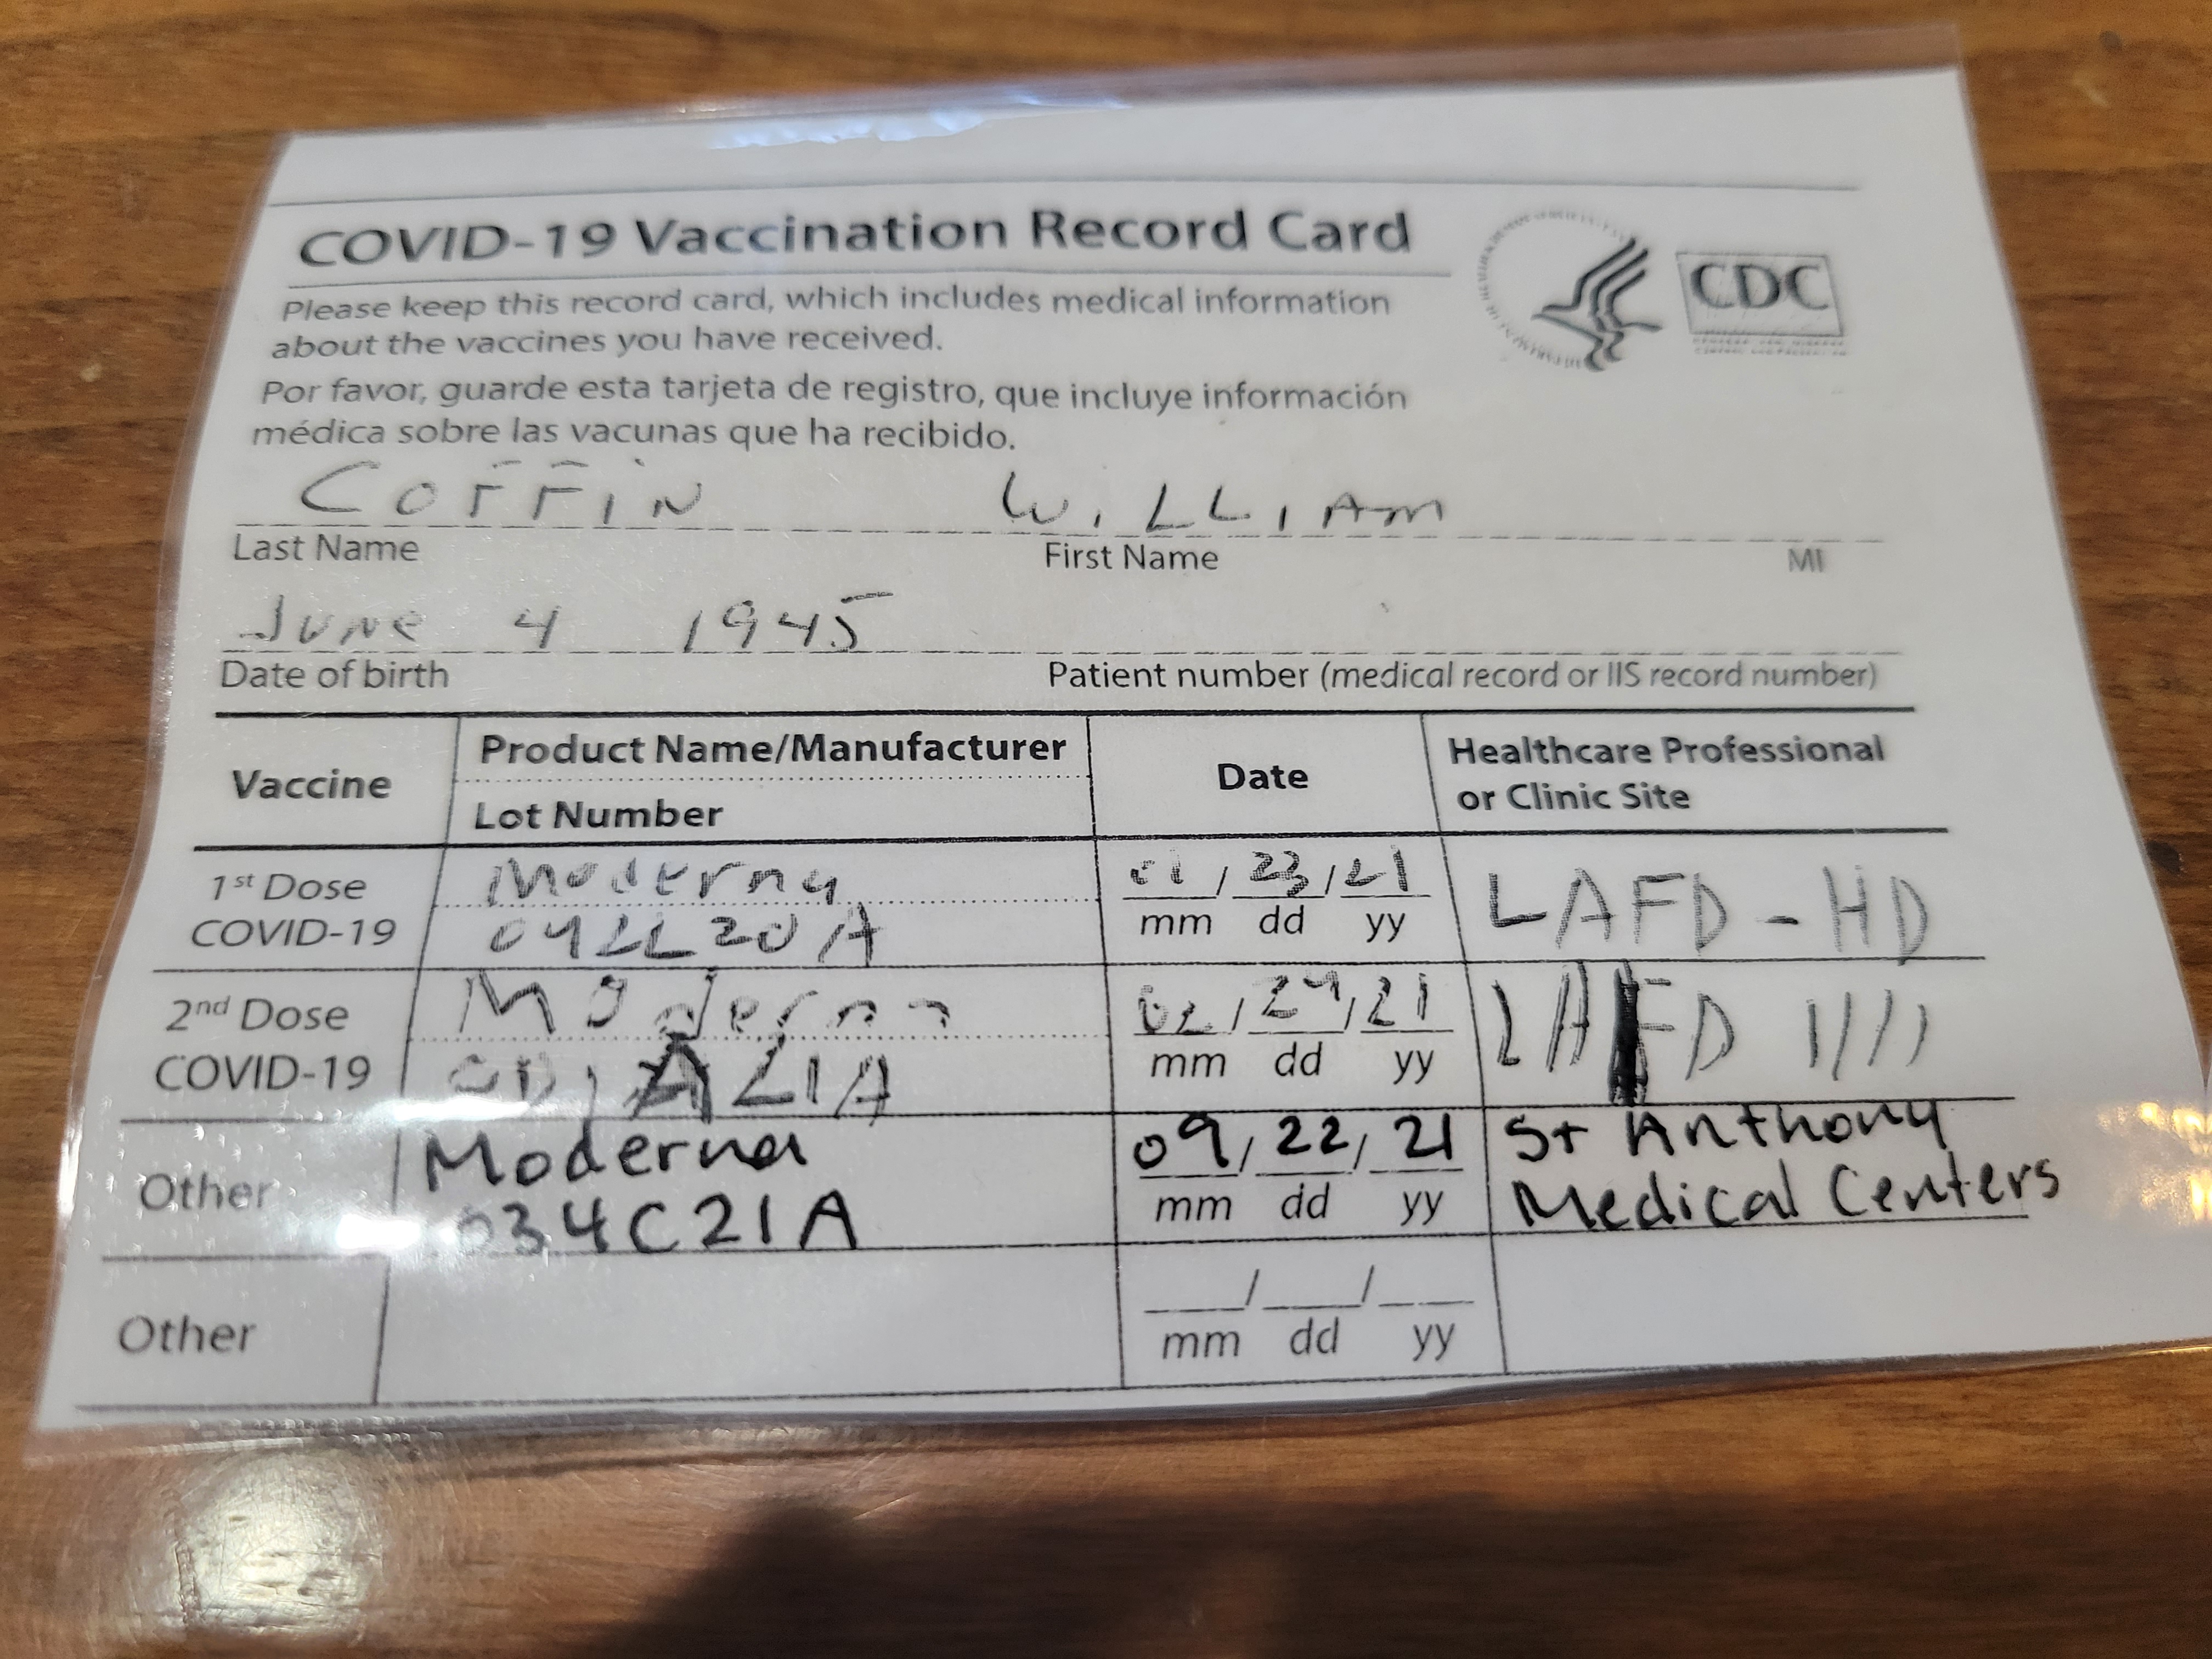 COVID-19 Vaccination Record Card
CDC
Please keep this record card, which includes medical information
about the vaccines you have received.
Por favor, guarde esta tarjeta de registro, que incluye información
médica sobre las vacunas que ha recibido.
COFFIN WILLIAM
Last Name First Name MI
June 4 1945
Date of birth Patient number (medical record or IIS record number)
Vaccine Product Name/Manufacturer Date Healthcare Professional
Lot Number or Clinic Site
1st Dose Moderna 01/23/21 LAFD-HD
COVID-19 mm dd yy
2nd Dose Moderna 02/24/21 LAFD
COVID-19 mm dd yy
Other Moderna 09/22/21 St Anthony
034C21A mm dd yy Medical Centers
Other / /
mm dd yy